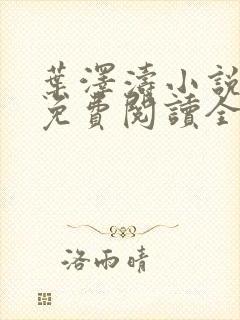 葉澤濤小說
免費閱讀全
洛雨晴